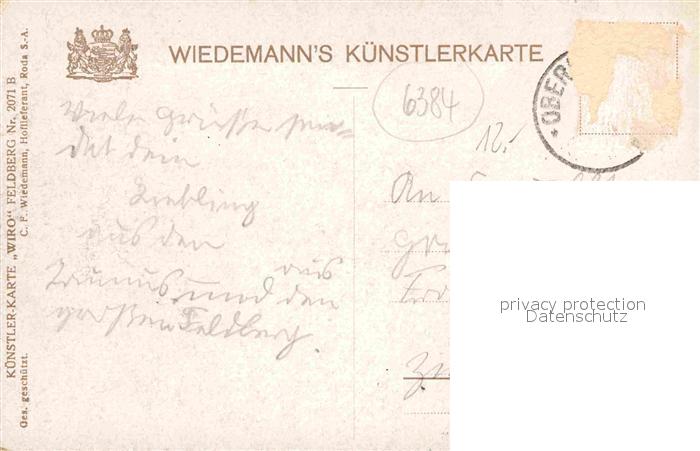 WIEDEMANN'S KÜNSTLERKARTE
KÜNSTLER-KARTE „WIRO“ FELDBERG Nr. 2071 B
C. F. Wiedemann, Hoflieferant, Roda S.-A.
Ges. geschützt.
6384
OBER
12.-
Viele Grüsse sen-
det dein
Liebling
aus den
Taunus und den
großen Feldberg.
An
privacy protection
Datenschutz